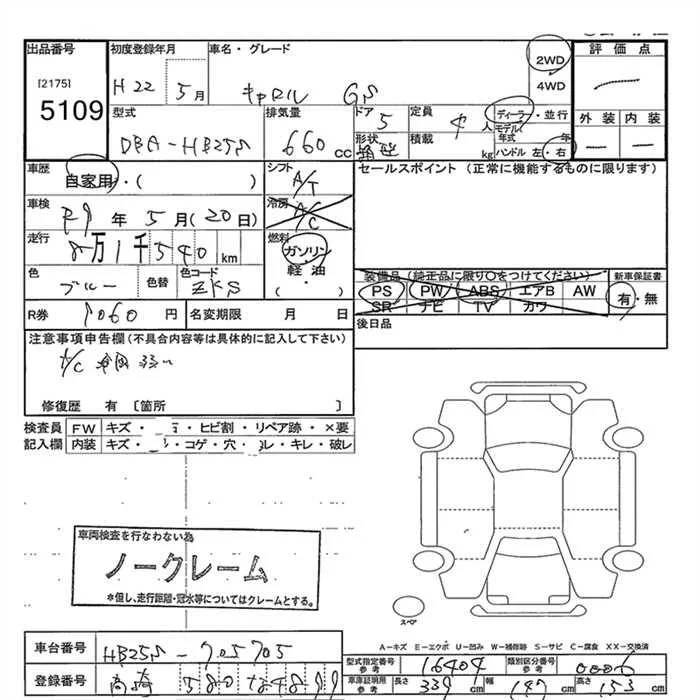 出品番号
[2175]
5109
初度登録年月
H22 5月
車名・グレード
キャロル GS
2WD
4WD
評価点
外装 内装
型式
DBA-HB25S
排気量
660 cc
ドア
5
定員
4 人
形状
積載
kg
ディーラー・並行
モデル年式 年
ハンドル 左・右
車歴
自家用・( )
シフト
A/T
セールスポイント (正常に機能するものに限ります)
車検
年 5月(20日)
冷房
A/C
走行
8万1千540km
燃料
ガソリン
軽油
( ・ )
色
ブルー
色替
色コード
ZKS
装備品(純正品に限り○をつけてください)
PS PW ABS エアB AW
SR ナビ TV カワ
新車保証書
有・無
R券
円
名変期限 月 日
後日品
注意事項申告欄(不具合内容等は具体的に記入して下さい)
A/C
弱い
修復歴 有 [箇所 ]
検査員 FW キズ・ ・ヒビ割・リペア跡・×要
記入欄 内装 キズ・ ・コゲ・穴・ ・キレ・破レ
車両検査を行なわない為
ノークレーム
*但し、走行距離・冠水等についてはクレームとする。
スペア
A-キズ E-エクボ U-凹み W-補修跡 S-サビ C-腐食 XX-交換済
車台番号
HB25S-705705
型式指定番号
参考
16404
類別区分番号
参考
0006
登録番号
車庫証明用
参考
長さ
339 cm
幅
147 cm
高さ
153 cm